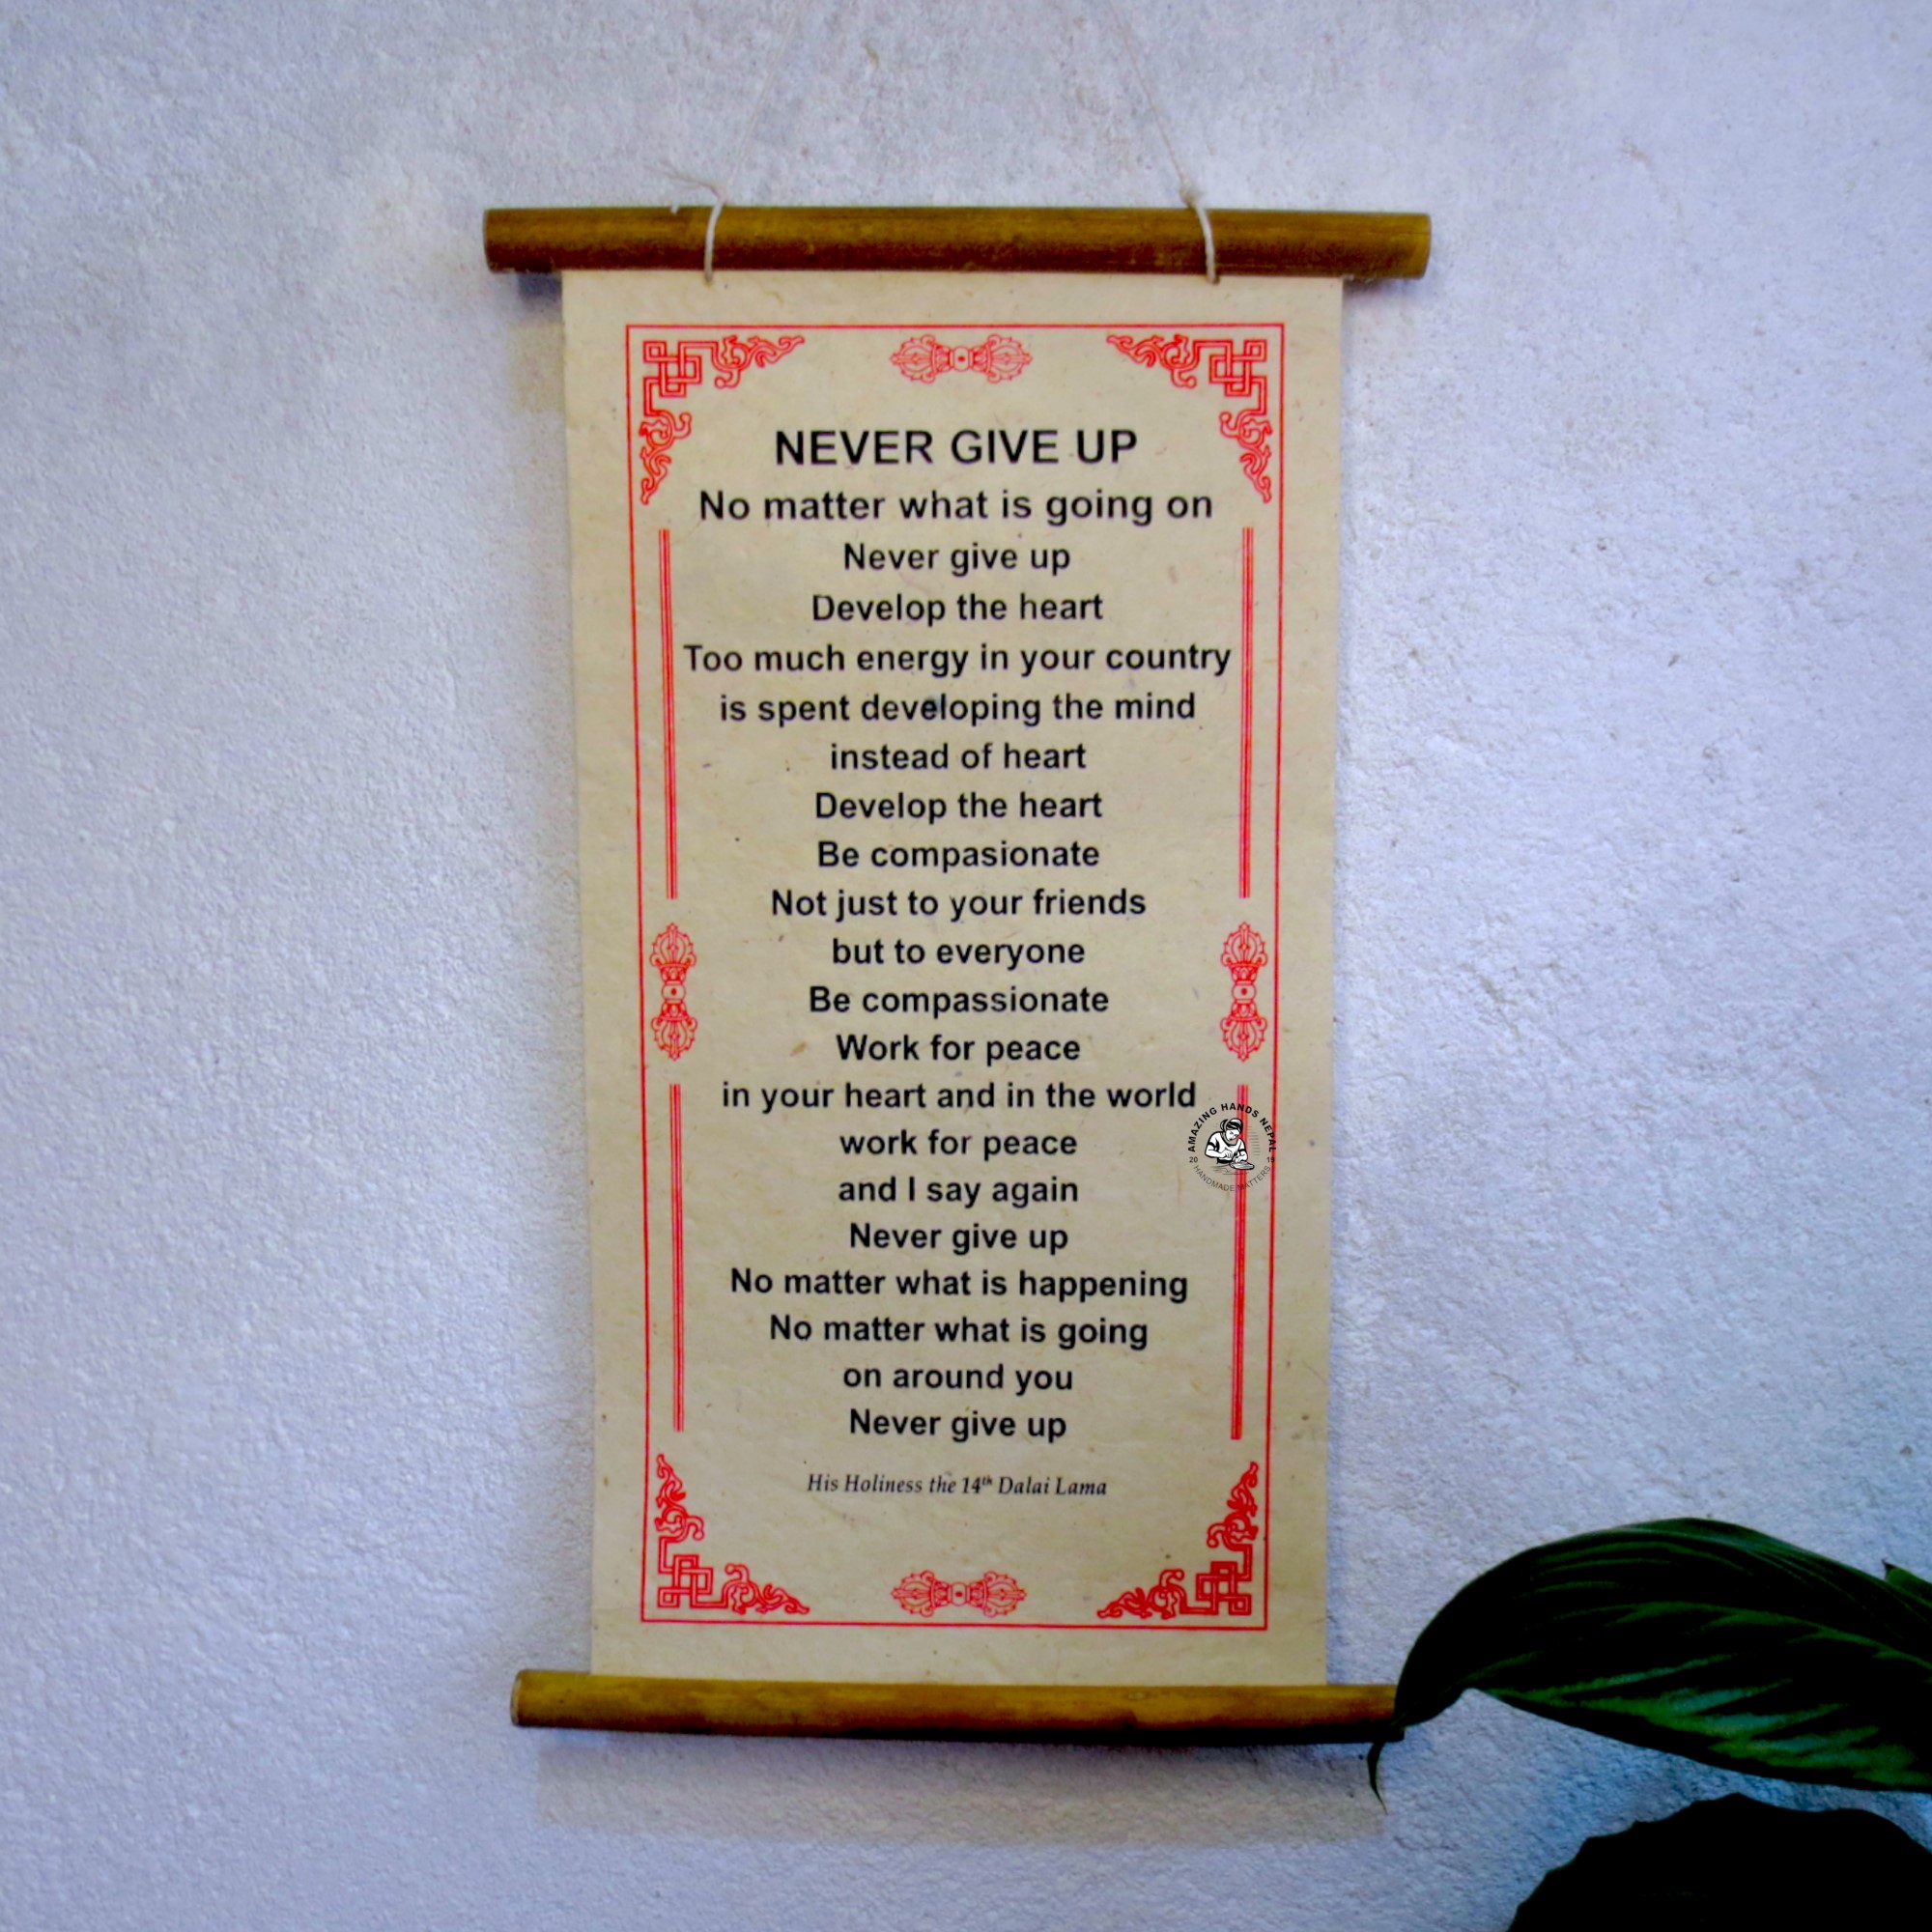 NEVER GIVE UP
No matter what is going on
Never give up
Develop the heart
Too much energy in your country
is spent developing the mind
instead of heart
Develop the heart
Be compasionate
Not just to your friends
but to everyone
Be compassionate
Work for peace
in your heart and in the world
work for peace
and I say again
Never give up
No matter what is happening
No matter what is going
on around you
Never give up
His Holiness the 14th Dalai Lama
AMAZING HANDS NEPAL
20 19
HANDMADE MATTERS